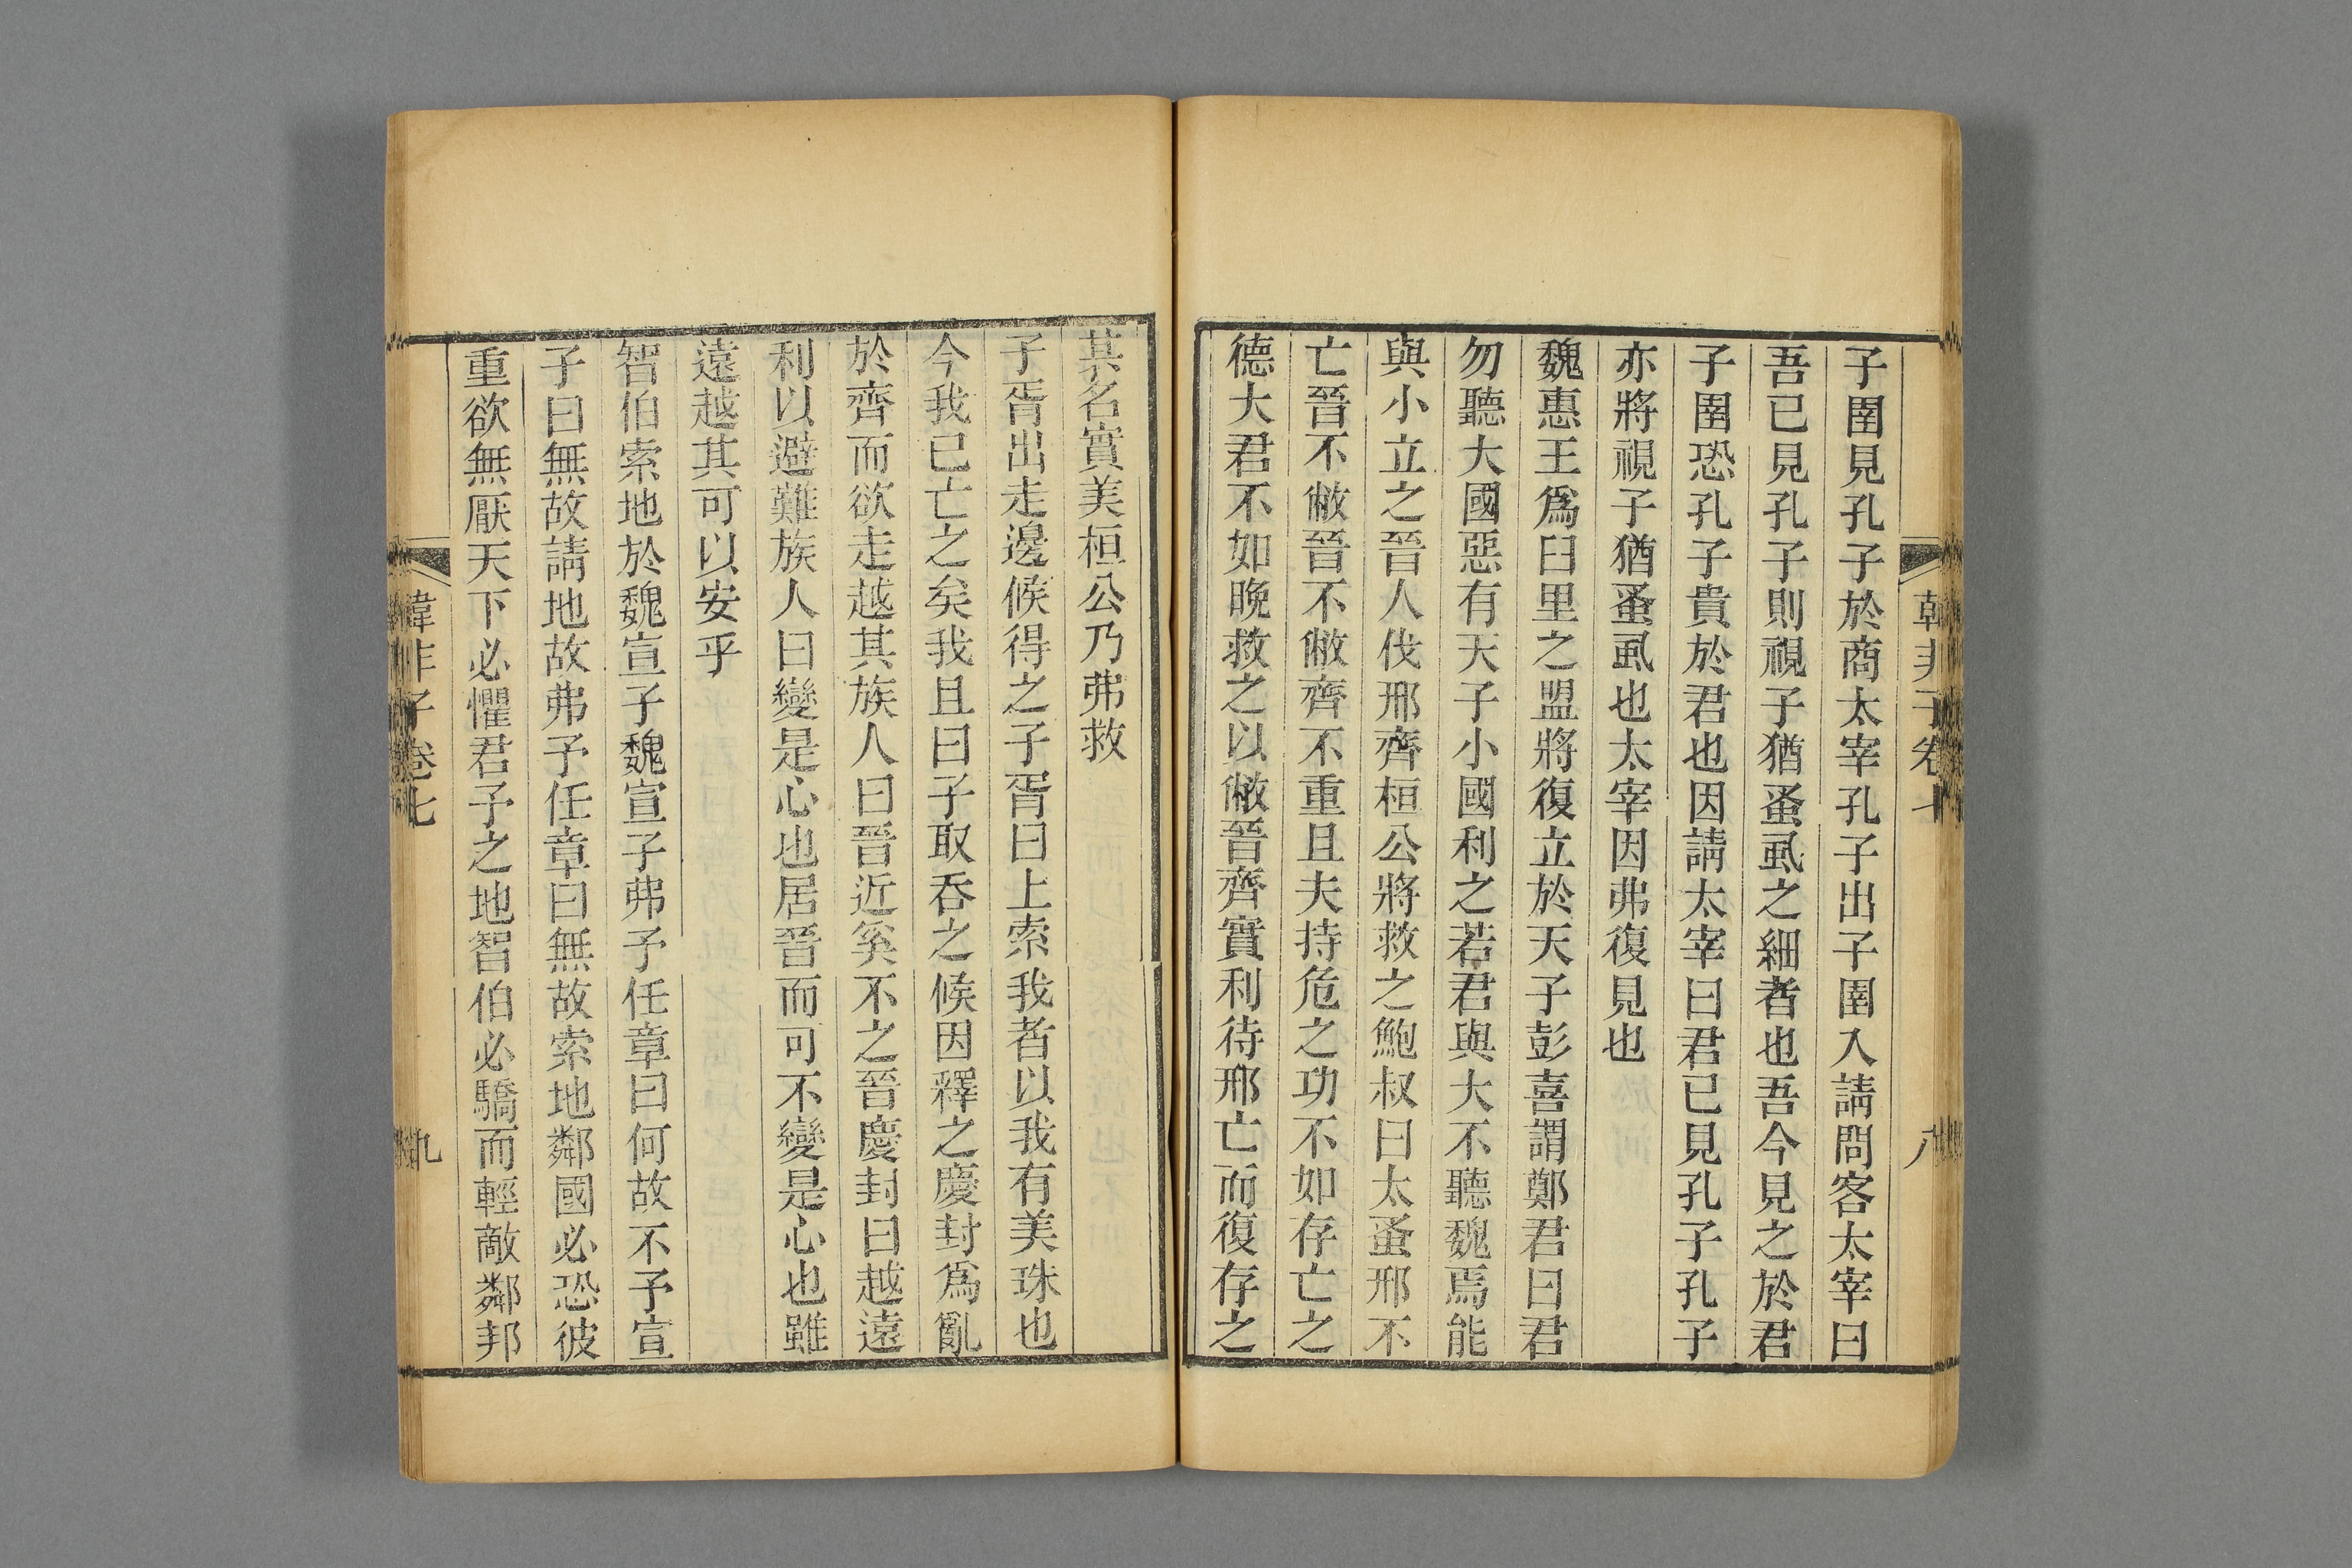 子圉見孔子於商太宰孔子出子圉入請問客太宰曰
吾已見孔子則視子猶蚤虱之細者也吾今見之於君
子圉恐孔子貴於君也因請太宰曰君已見孔子孔子
亦將視子猶蚤虱也太宰因弗復見也
魏惠王爲臼里之盟將復立於天子彭喜謂鄭君曰君
勿聽大國惡有天子小國利之若君與大不聽魏焉能
與小立之晉人伐邢齊桓公將救之鮑叔曰太蚤邢不
亡晉不敝晉不敝齊不重且夫持危之功不如存亡之
德大君不如晚救之以敝晉齊實利待邢亡而復存之
其名實美桓公乃弗救
子胥出走邊候得之子胥曰上索我者以我有美珠也
今我已亡之矣我且曰子取吞之候因釋之慶封爲亂
於齊而欲走越其族人曰晉近奚不之晉慶封曰越遠
利以避難族人曰變是心也居晉而可不變是心也雖
遠越其可以安乎
智伯索地於魏宣子魏宣子弗予任章曰何故不予宣
子曰無故請地故弗予任章曰無故索地鄰國必恐彼
重欲無厭天下必懼君予之地智伯必驕而輕敵鄰邦
韓非子卷七
九